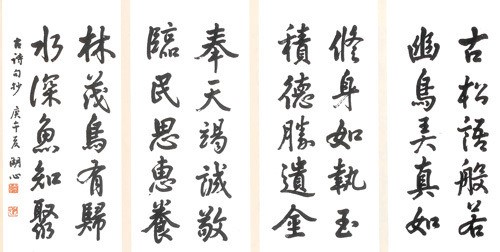 古松語般若
幽鳥弄真如
修身如執玉
積德勝遺金
奉天竭誠敬
臨民思惠養
林茂鳥有歸
水深魚知聚
古詩句抄 庚午夏 明心